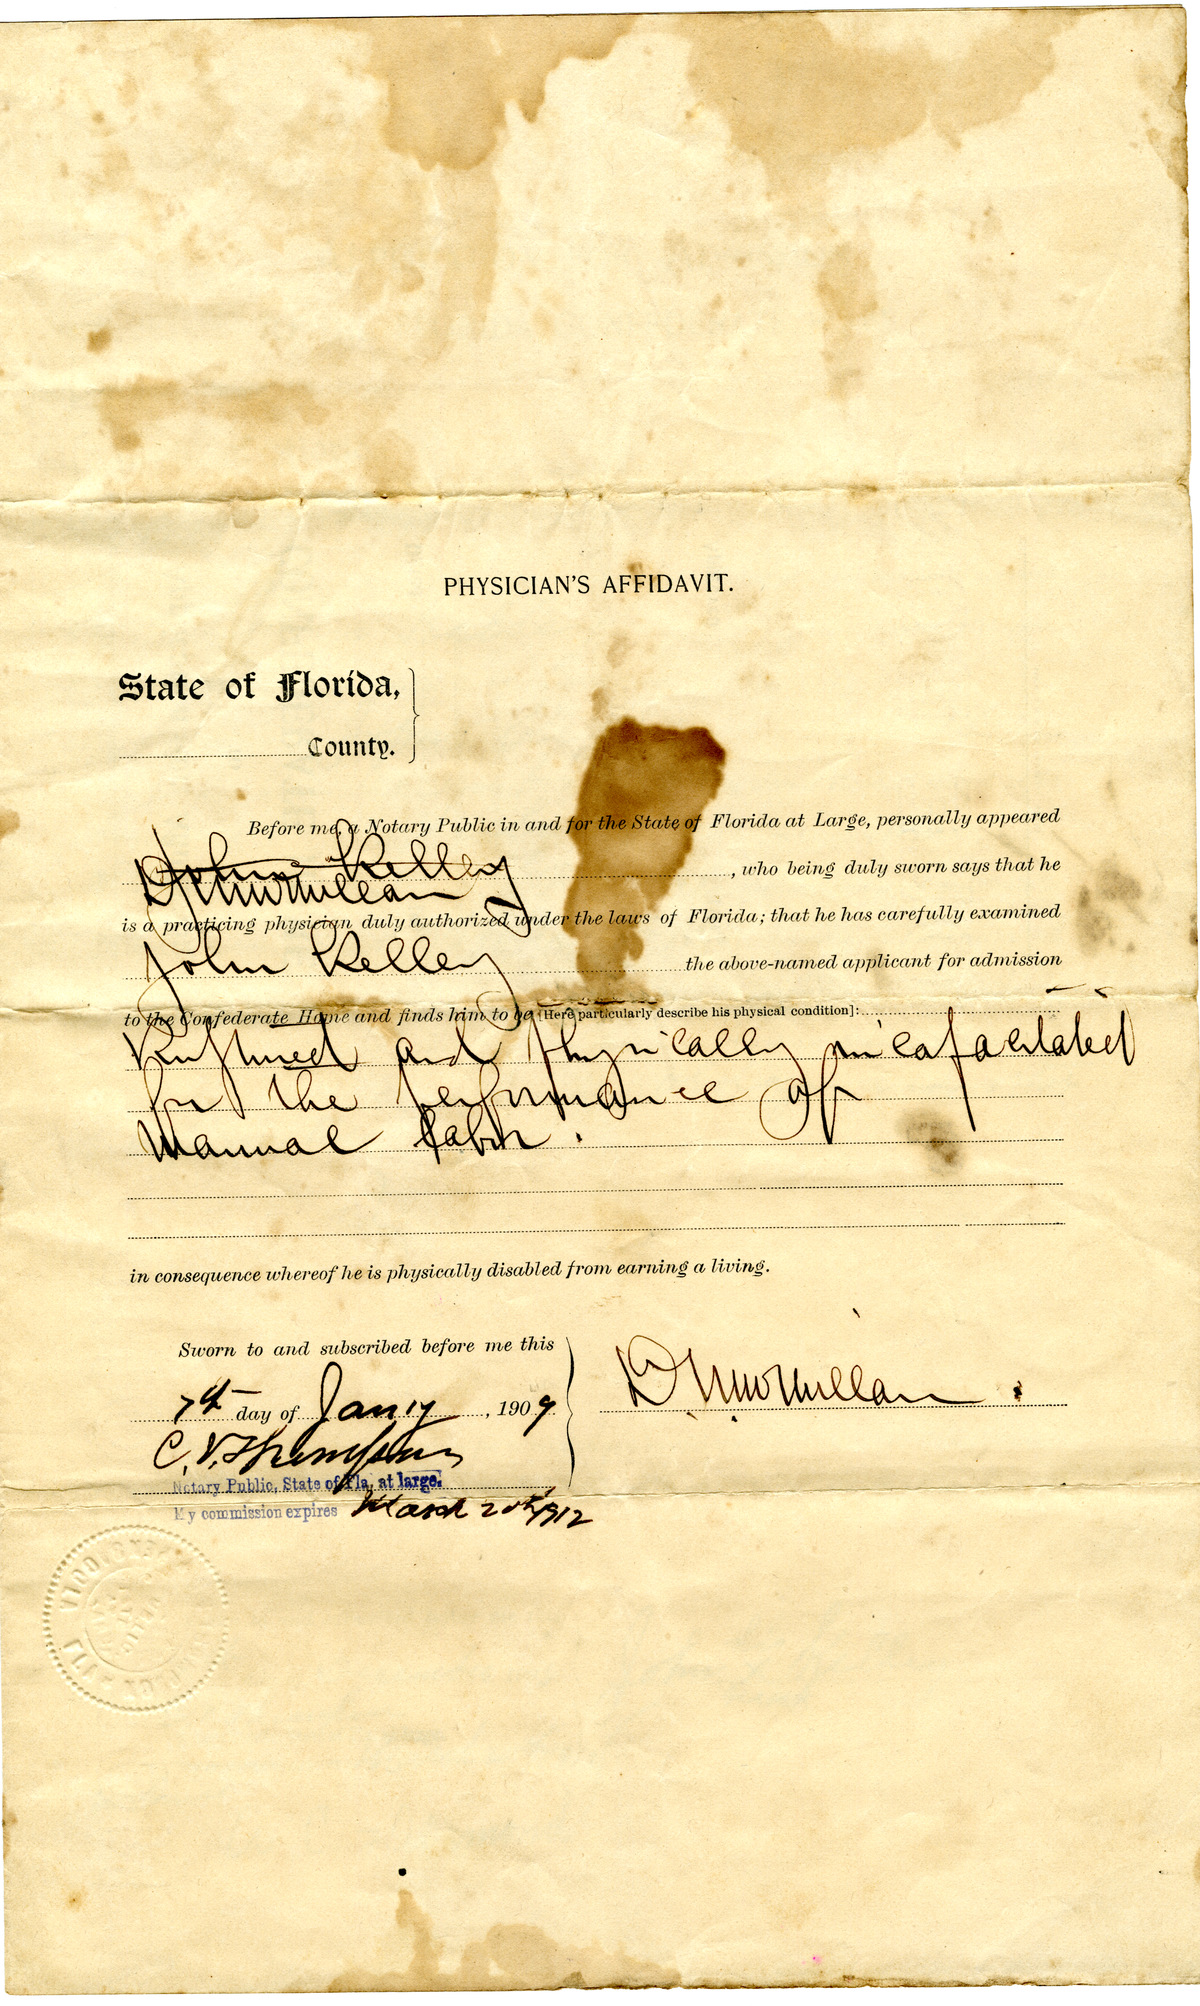 PHYSICIAN'S AFFIDAVIT.
State of Florida,
County.
Before me, a Notary Public in and for the State of Florida at Large, personally appeared
John Kelley
McMillan, who being duly sworn says that he
is a practicing physician duly authorized under the laws of Florida; that he has carefully examined
John Kelley the above-named applicant for admission
to the Confederate Home and finds him to be [Here particularly describe his physical condition]:
Ruptured and physically incapacitated
for the performance of
manual labor.
in consequence whereof he is physically disabled from earning a living.
Sworn to and subscribed before me this
7th day of Jany, 1909.
McMillan
C. V. Thompson
Notary Public, State of Fla, at large.
My commission expires March 20th 1912